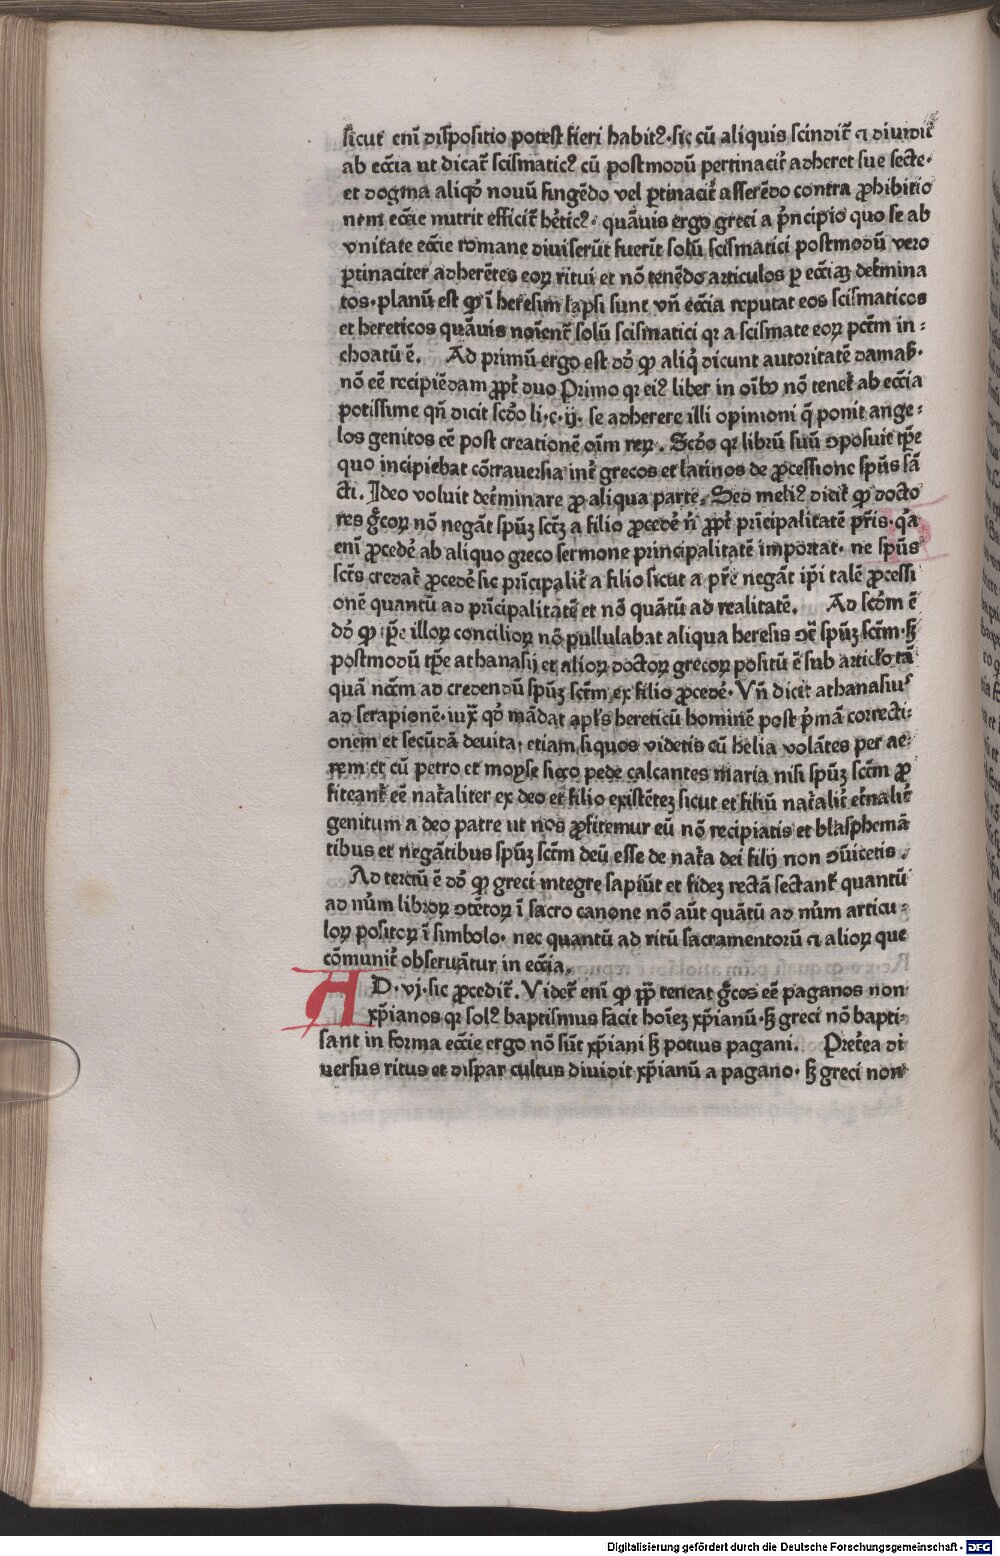 sicut enī dispositio potest fieri habitꝰ·sic cū aliquis scindit̄ ⁊ diuidit̄
ab ecc̄ia ut dicat̄ scismaticꝰ cū postmodū pertinacit̄ adheret sue secte·
et dogma aliqd̄ nouū fingēdo vel ꝑtinacit̄ asserēdo contra ꝓhibitio
nem ecc̄ie nutrit efficit̄ hētic̄ꝰ· quāuis ergo greci a pͥncipio quo se ab
vnitate ecc̄ie romane diuiserūt fuerīt solū scismatici postmodū vero
ꝑtinaciter adherētes eoꝝ ritui et nō tenēdo articulos ꝑ ecc̄iaꝫ det̄mina
tos·planū est ꝙ ī heresim lapsi sunt vn̄ ecc̄ia reputat eos scismaticos
et hereticos quāuis noīent̄ solū scismatici qꝛ a scismate eoꝝ pctm̄ in⸗
choatū ē. Ad primū ergo est dō ꝙ aliqͥ dicunt autoritatē damas̄·
nō eē recipiēdam ꝓpt̄ duo Primo qꝛ eiꝰ liber in oībꝰ nō tenet̄ ab ecc̄ia
potissime qn̄ dicit scd̄o li·c·ij· se adherere illi opinioni q̄ ponit ange⸗
los genitos eē post creationē oīm reꝝ. Scd̄o qꝛ librū suū ↄposuit tp̄e
quo incipiebat cōtrauersia int̄ grecos et latinos de ꝓcessione spūs sā
cti. Ideo voluit det̄minare ꝓ aliqua parte. Sed meliꝰ dicit̄ ꝙ docto
res gͣcoꝝ nō negāt spūꝫ sctꝫ a filio ꝓcedē n̄ ꝓpt̄ prīcipalitatē pr̄is·qͣa
enī ꝓcedē ab aliquo greco sermone principalitatē importat· ne spūs
scts̄ credat̄ ꝓcedē sic prīcipalit̄ a filio sicut a pr̄e negāt ip̄i talē ꝓcessi
onē quantū ad prīcipalitatē et nō quātū ad realitatē. Ad scd̄m ē
dō ꝙ tp̄e illoꝝ concilioꝝ nō pullulabat aliqua heresis ↄt̄ spūꝫ sctm̄·sꝫ
postmodū tp̄e athanasij et alioꝝ doctoꝝ grecoꝝ positū ē sub articl̄o tā
quā nccm̄ ad credendū spūꝫ sctm̄ ex filio ꝓcedē· Vn̄ dicit athanasiuˢ
ad serapionē·iux̄ qd̄ mādat apl̄s hereticū hominē post pͥmā correcti⸗
onem et secūdā deuita, etiam siquos videtis cū helia volātes per ae⸗
rem et cū petro et moyse sicco pede calcantes maria nisi spūꝫ sctm̄ ꝓ
fiteant̄ eē nat̄aliter ex deo et filio existēteꝫ sicut et filiū nat̄alit̄ et̄nalit̄
genitum a deo patre ut nos ꝓfitemur eū nō recipiatis et blasphemā
tibus et negātibus spūꝫ sctm̄ deū esse de nat̄a dei filij non ↄūicetis.
Ad terciū ē dō ꝙ greci integre sapiūt et fideꝫ rectā sectant̄ quantū
ad nūm libroꝝ ↄtētoꝝ ī sacro canone nō aūt quātū ad nūm articu⸗
loꝝ positoꝝ ī simbolo· nec quantū ad ritū sacramentorū ⁊ alioꝝ que
cōmunit̄ obseruātur in ecc̄ia.
AD·vj·sic ꝓcedit̄. Videt̄ enī ꝙ pp̄ teneat gͣcos eē paganos non
xp̄ianos qꝛ solꝰ baptismus facit hoīeꝫ xp̄ianū·sꝫ greci nō bapti⸗
sant in forma ecc̄ie ergo nō sūt xp̄iani sꝫ potius pagani. Pret̄ea di
uersus ritus et dispar cultus diuidit xp̄ianū a pagano· sꝫ greci non
Digitalisierung gefördert durch die Deutsche Forschungsgemeinschaft - DFG